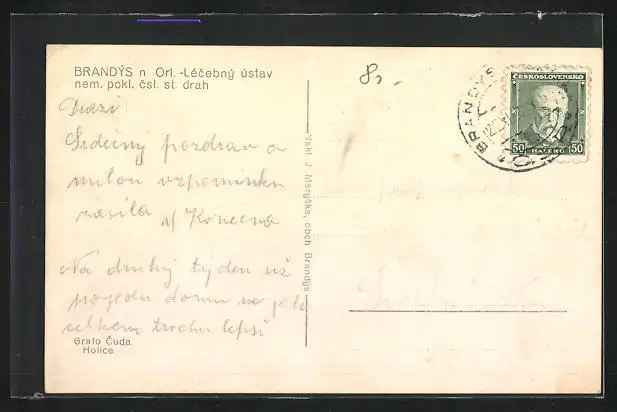 BRANDÝS n Orl. -Léčebný ústav
nem. pokl. čsl. st. drah.
8,-
ČESKOSLOVENSKO
50 HALÉŘŮ 50
BRANDÝS
Drazí
Srdečný pozdrav a
milou vzpomínku
zasílá Konečná
Na druhý týden už
pojedu domů
celkem trochu lepší
Grafo Čuda
Holice.
Vakl J. Maryška, obch. Brandýs